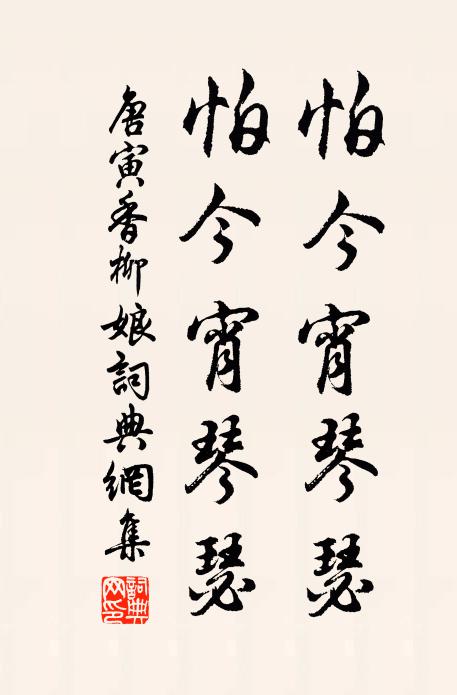 怕今宵琴瑟
怕今宵琴瑟
唐寅香柳娘詞典網集
詞典
网印